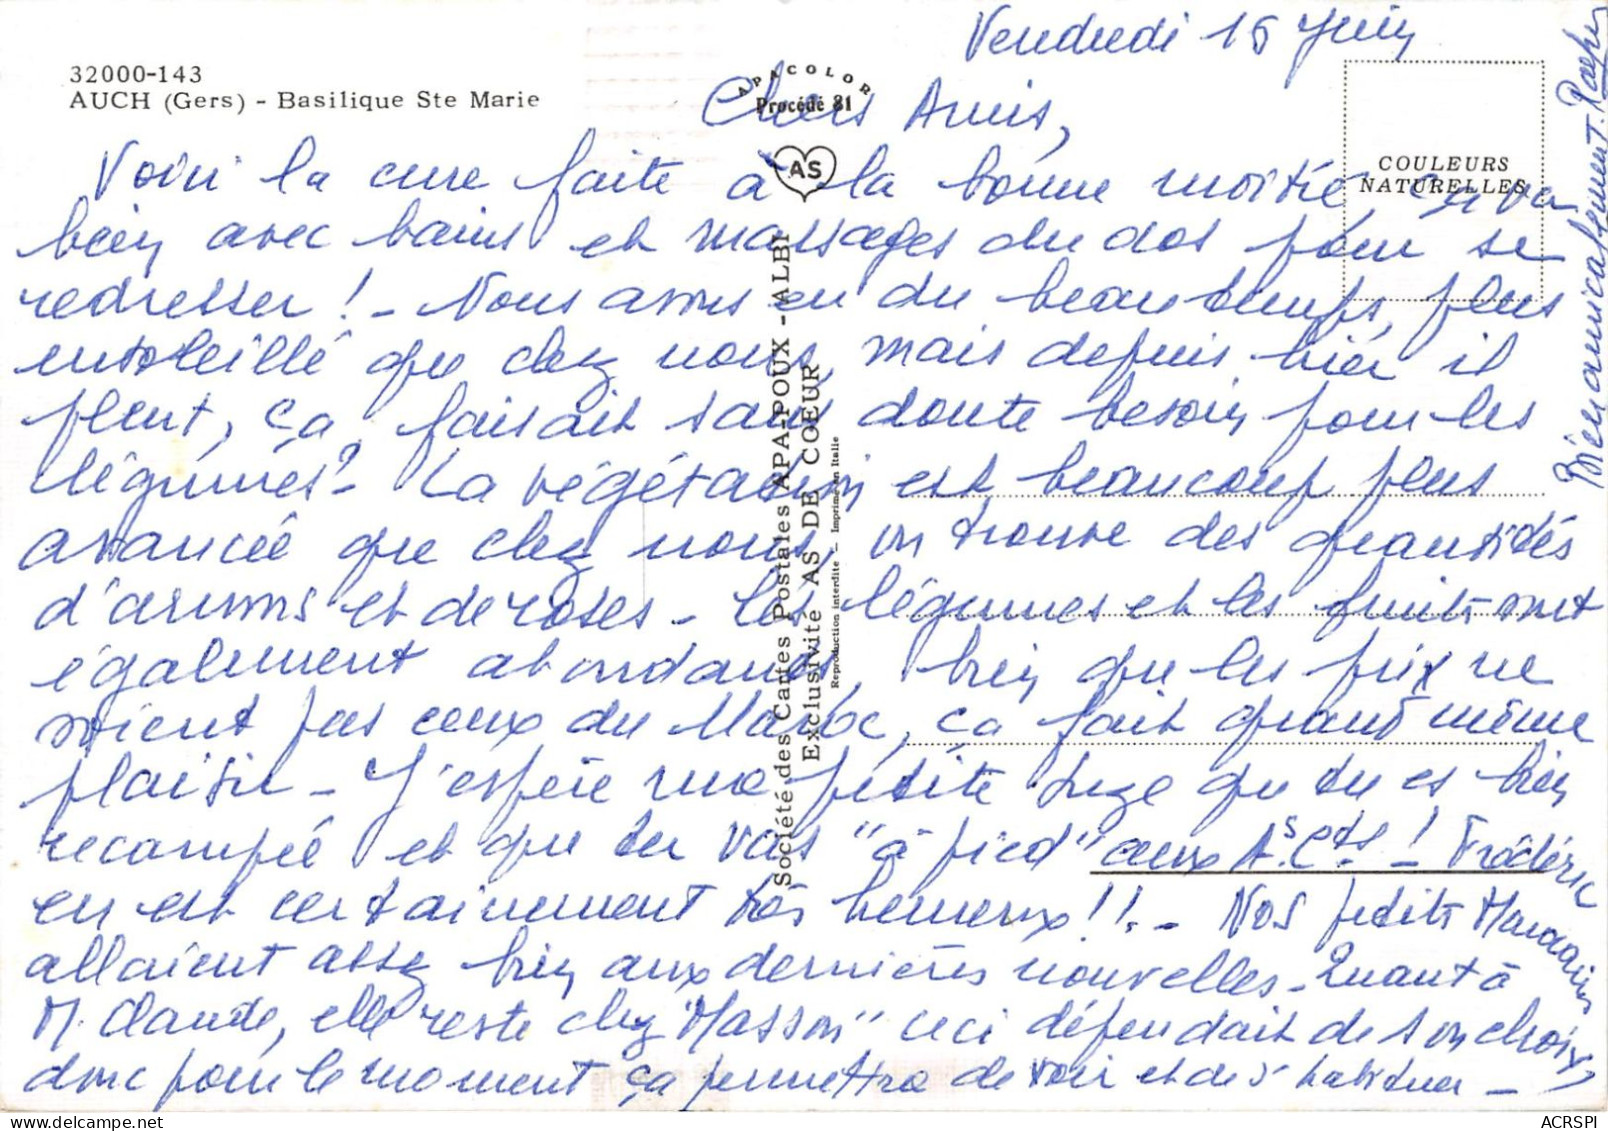 Vendredi 15 Juin
32000-143
AUCH (Gers) - Basilique Ste Marie
APACOLOR
Procédé 81
AS
COULEURS
NATURELLES
Société des Cartes Postales APA-POUX - ALBI
Exclusivité AS DE COEUR
Reproduction interdite — Imprimé en Italie
Chers Amis,
Voici la cure faite à la bonne moitié, ça va
bien avec bains et massages du dos pour se
redresser ! - Nous avons eu du beau temps, plus
ensoleillé que chez nous, mais depuis hier il
pleut, ça faisait sans doute besoin pour les
légumes ? - La végétation est beaucoup plus
avancée que chez nous, on trouve des quantités
d'arums et de roses - Les légumes et les fruits sont
également abondants, bien que les prix ne
soient pas ceux du Maroc, ça fait quand même
plaisir - J'espère ma petite que tu es bien
recampée et que tu vas "à pied" aux As. Cts. ! Frédéric
en est certainement très heureux !! - Nos petits Marocains
allaient assez bien aux dernières nouvelles - Quant à
M. Claude, elle reste chez "Masson" ceci dépendait de son choix,
donc pour le moment ça permettra de voir et de s'habituer -
Bien amicalement.
ACRSPI